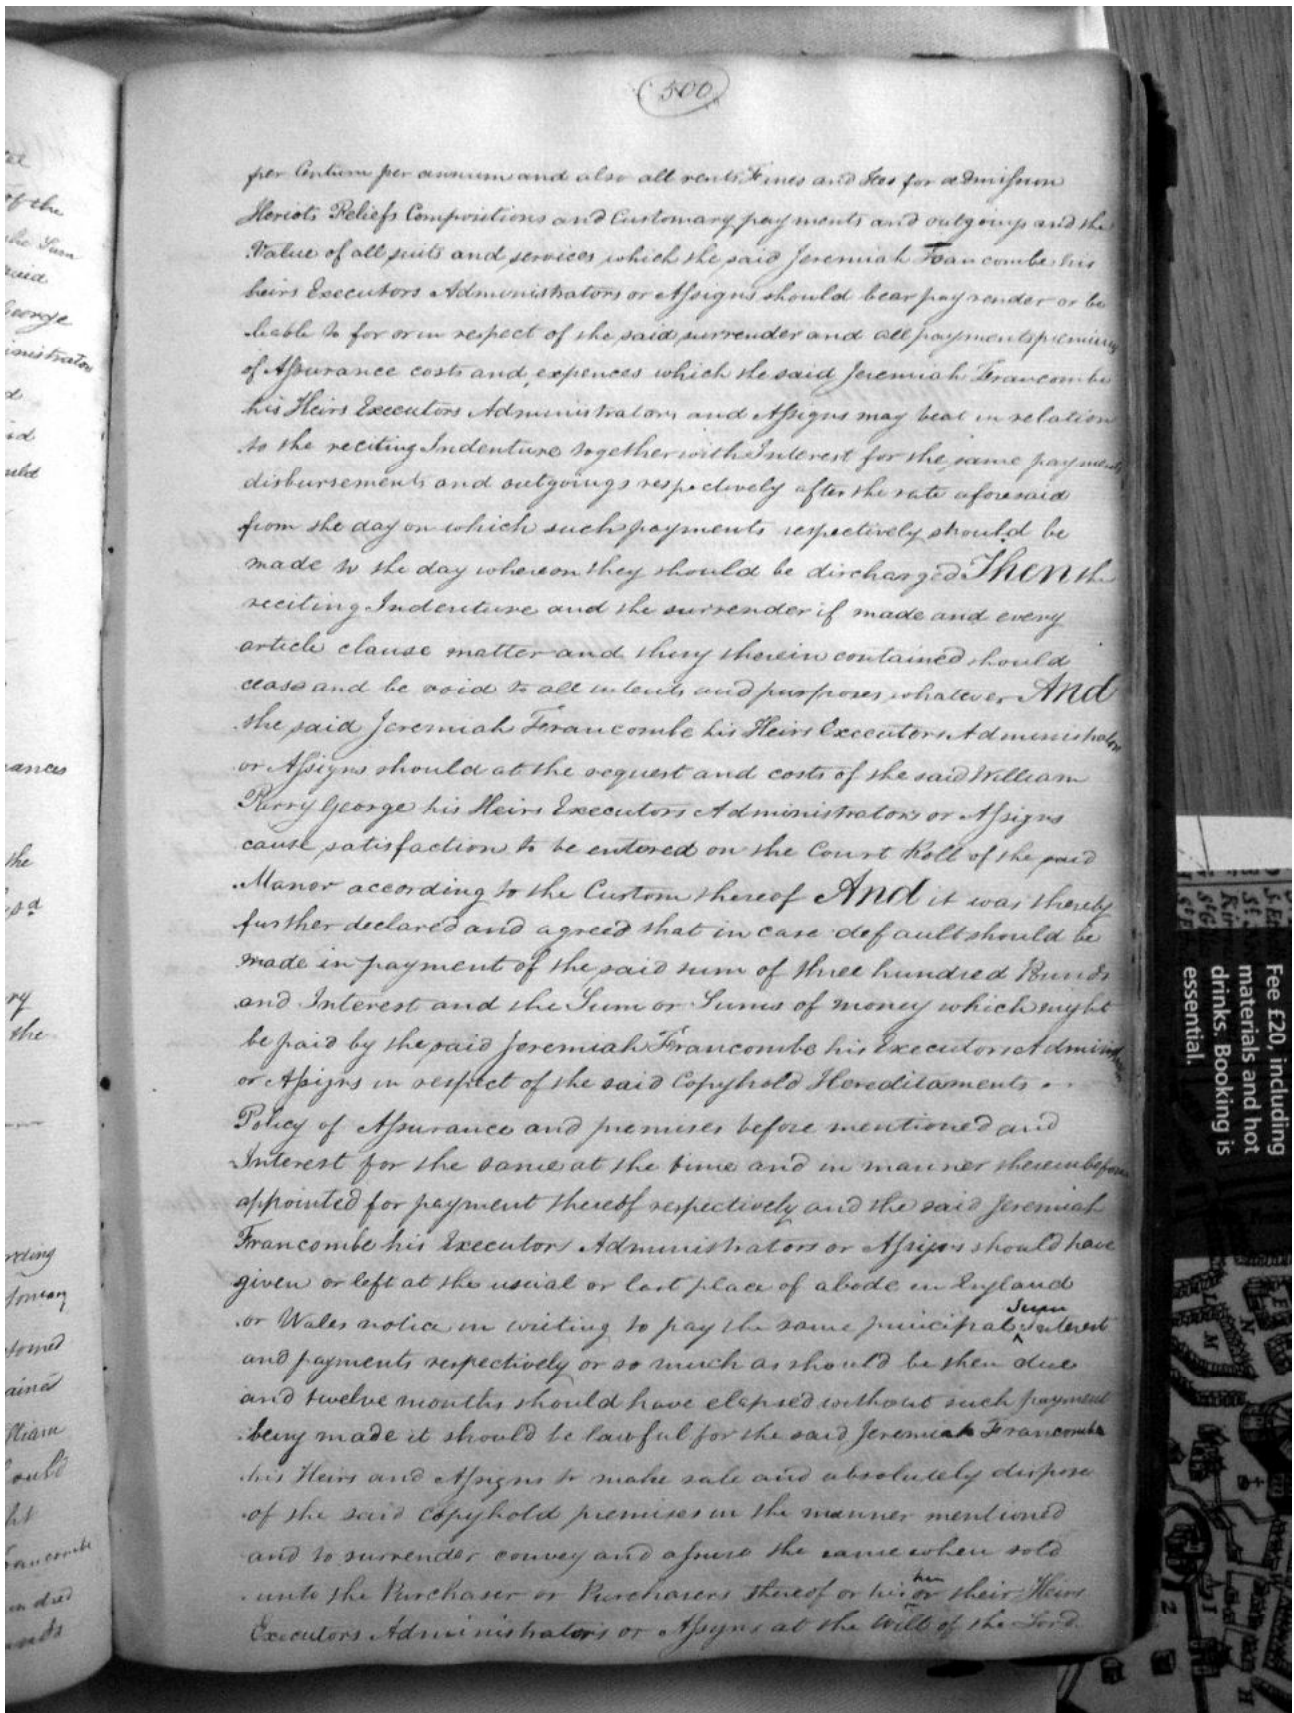 500
per Centum per annum and also all rents Fines and Fees for admission
Heriots Reliefs Compositions and Customary payments and outgoings and the
Value of all suits and services which the said Jeremiah Francombe his
heirs Executors Administrators or Assigns should bear pay render or be
liable to for or in respect of the said surrender and all payments premiums
of Assurance costs and expences which the said Jeremiah Francombe
his Heirs Executors Administrators and Assigns may bear in relation
to the reciting Indenture together with Interest for the same payments
disbursements and outgoings respectively after the rate aforesaid
from the day on which such payments respectively should be
made to the day whereon they should be discharged Then the
reciting Indenture and the surrender if made and every
article clause matter and thing therein contained should
cease and be void to all intents and purposes whatever And
the said Jeremiah Francombe his Heirs Executors Administrators
or Assigns should at the request and costs of the said William
Parry George his Heirs Executors Administrators or Assigns
cause satisfaction to be entered on the Court Roll of the said
Manor according to the Custom thereof And it was thereby
further declared and agreed that in case default should be
made in payment of the said sum of three hundred Pounds
and Interest and the Sum or Sums of money which might
be paid by the said Jeremiah Francombe his Executors Admin
or Assigns in respect of the said Copyhold Hereditaments
Policy of Assurance and premises before mentioned and
Interest for the same at the time and in manner thereinbefore
appointed for payment thereof respectively and the said Jeremiah
Francombe his Executors Administrators or Assigns should have
given or left at the usual or last place of abode in England
or Wales notice in writing to pay the same principal Sum Interest
and payments respectively or so much as should be then due
and twelve months should have elapsed without such payment
being made it should be lawful for the said Jeremiah Francombe
his Heirs and Assigns to make sale and absolutely dispose
of the said copyhold premises in the manner mentioned
and to surrender convey and assure the same when sold
unto the Purchaser or Purchasers thereof or his her or their Heirs
Executors Administrators or Assigns at the Will of the Lord
of the
the Sum
said
George
ances
the
ry
the
Fee £20, including
materials and hot
drinks. Booking is
essential.